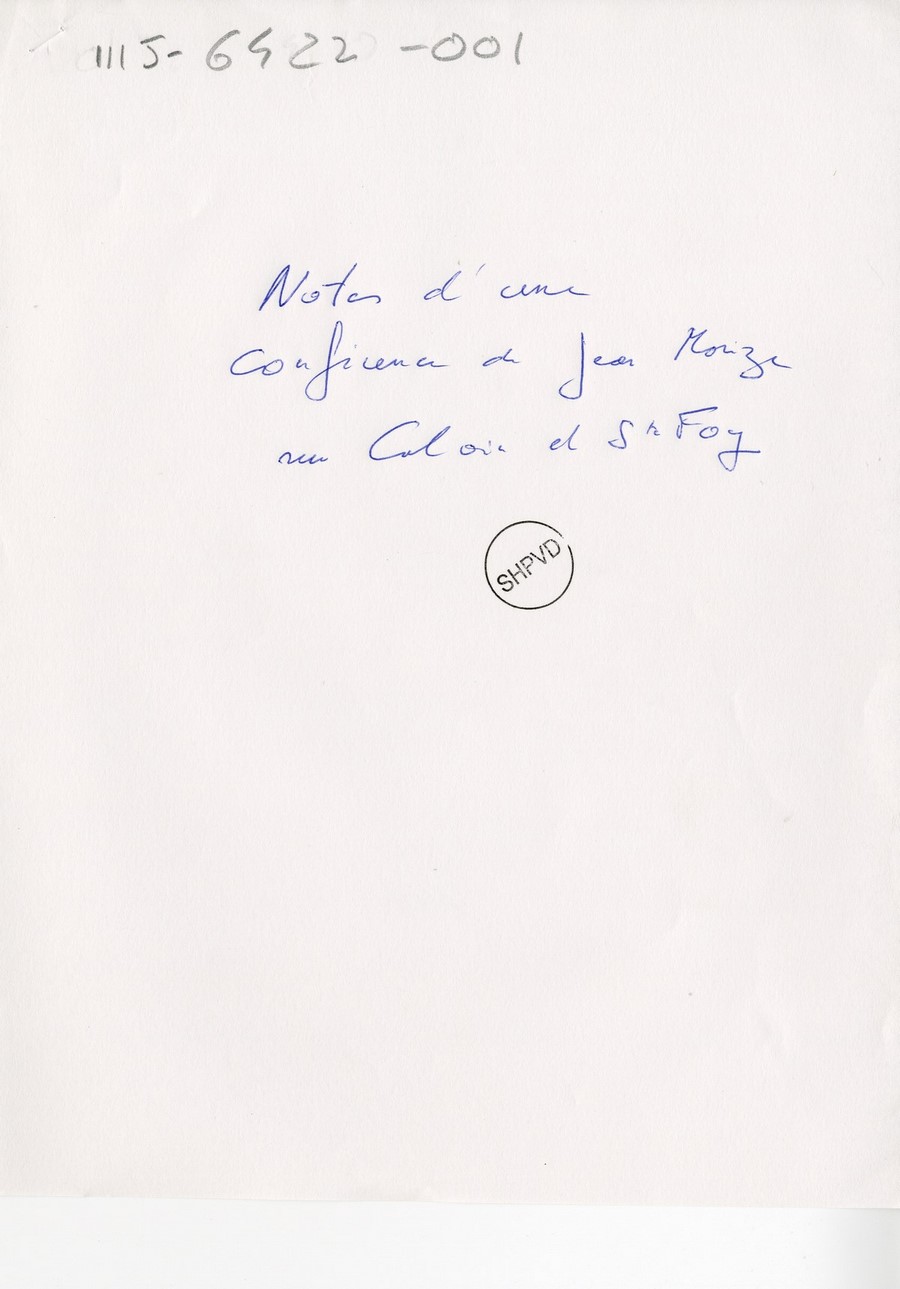 IIIJ-6422-001
Notes d'une
conférence de Jean Morize
sur Caloin et Ste Foy
SHPVD